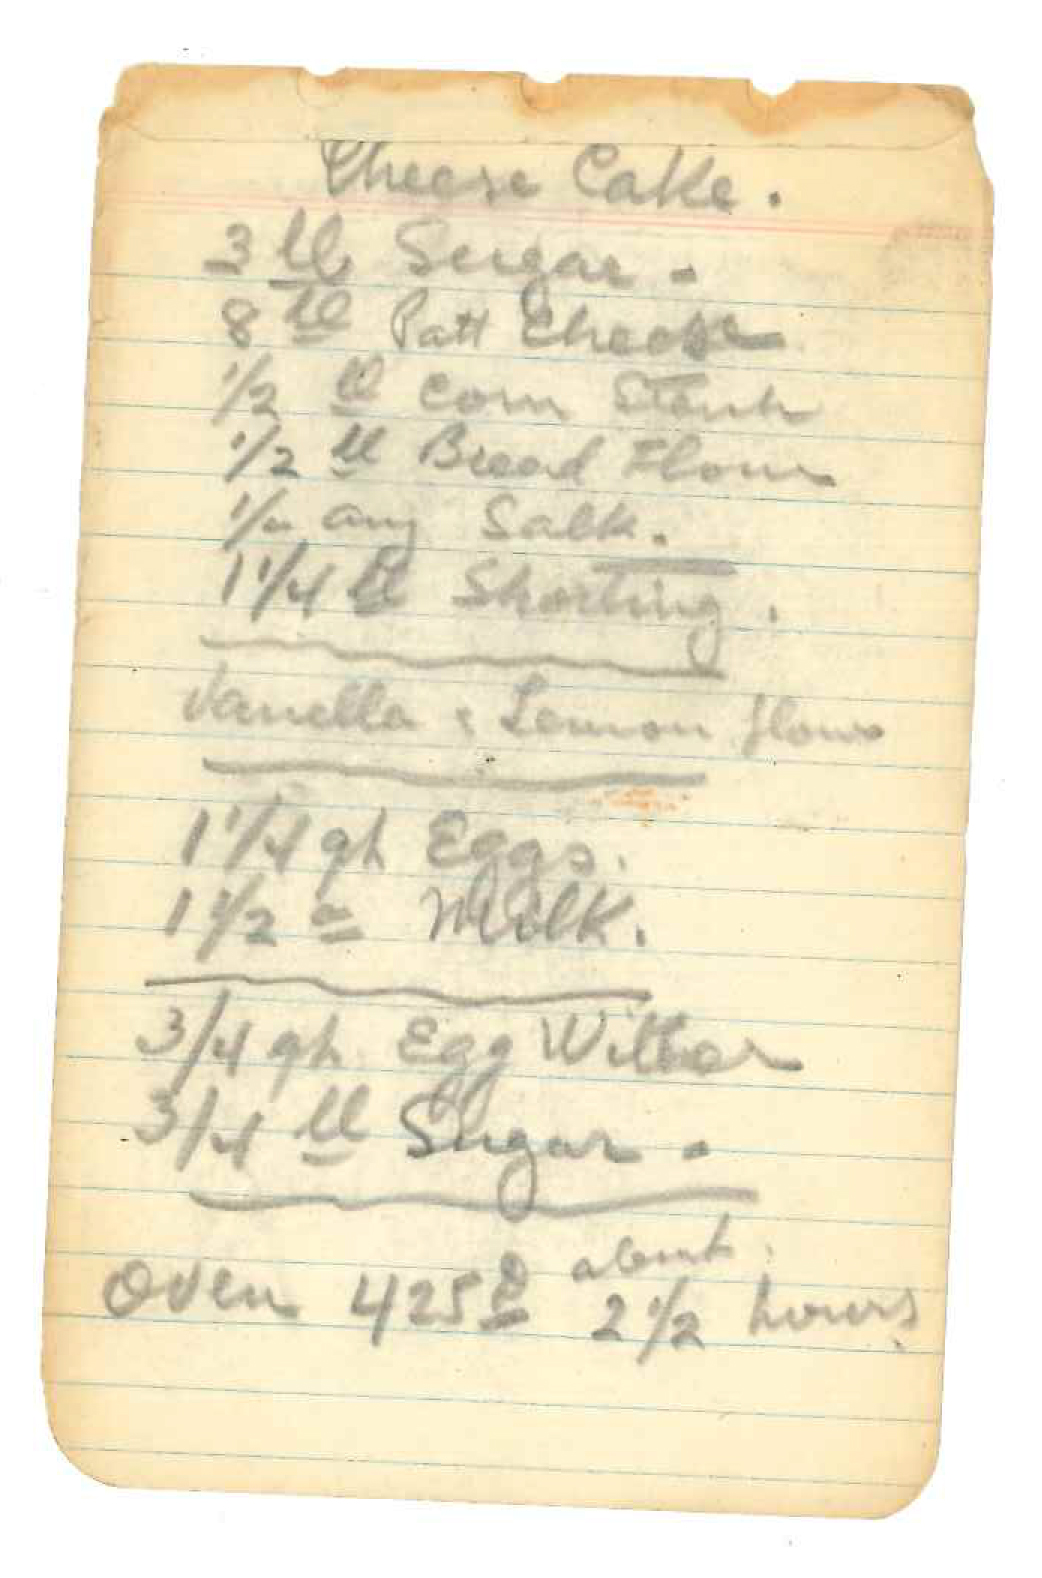 Cheese Cake.
3 lb Sugar -
8 lb Pott Cheese
1/2 lb Corn Starch
1/2 lb Bread Flour
1/2 Salt.
1 1/4 lb Shorting.
Vanella & Lemon flour
1 1/4 qh Eggs.
1 1/2 " Milk.
3/4 qh Egg Withes
3/4 lb Sugar -
Oven 425° about 2 1/2 hours